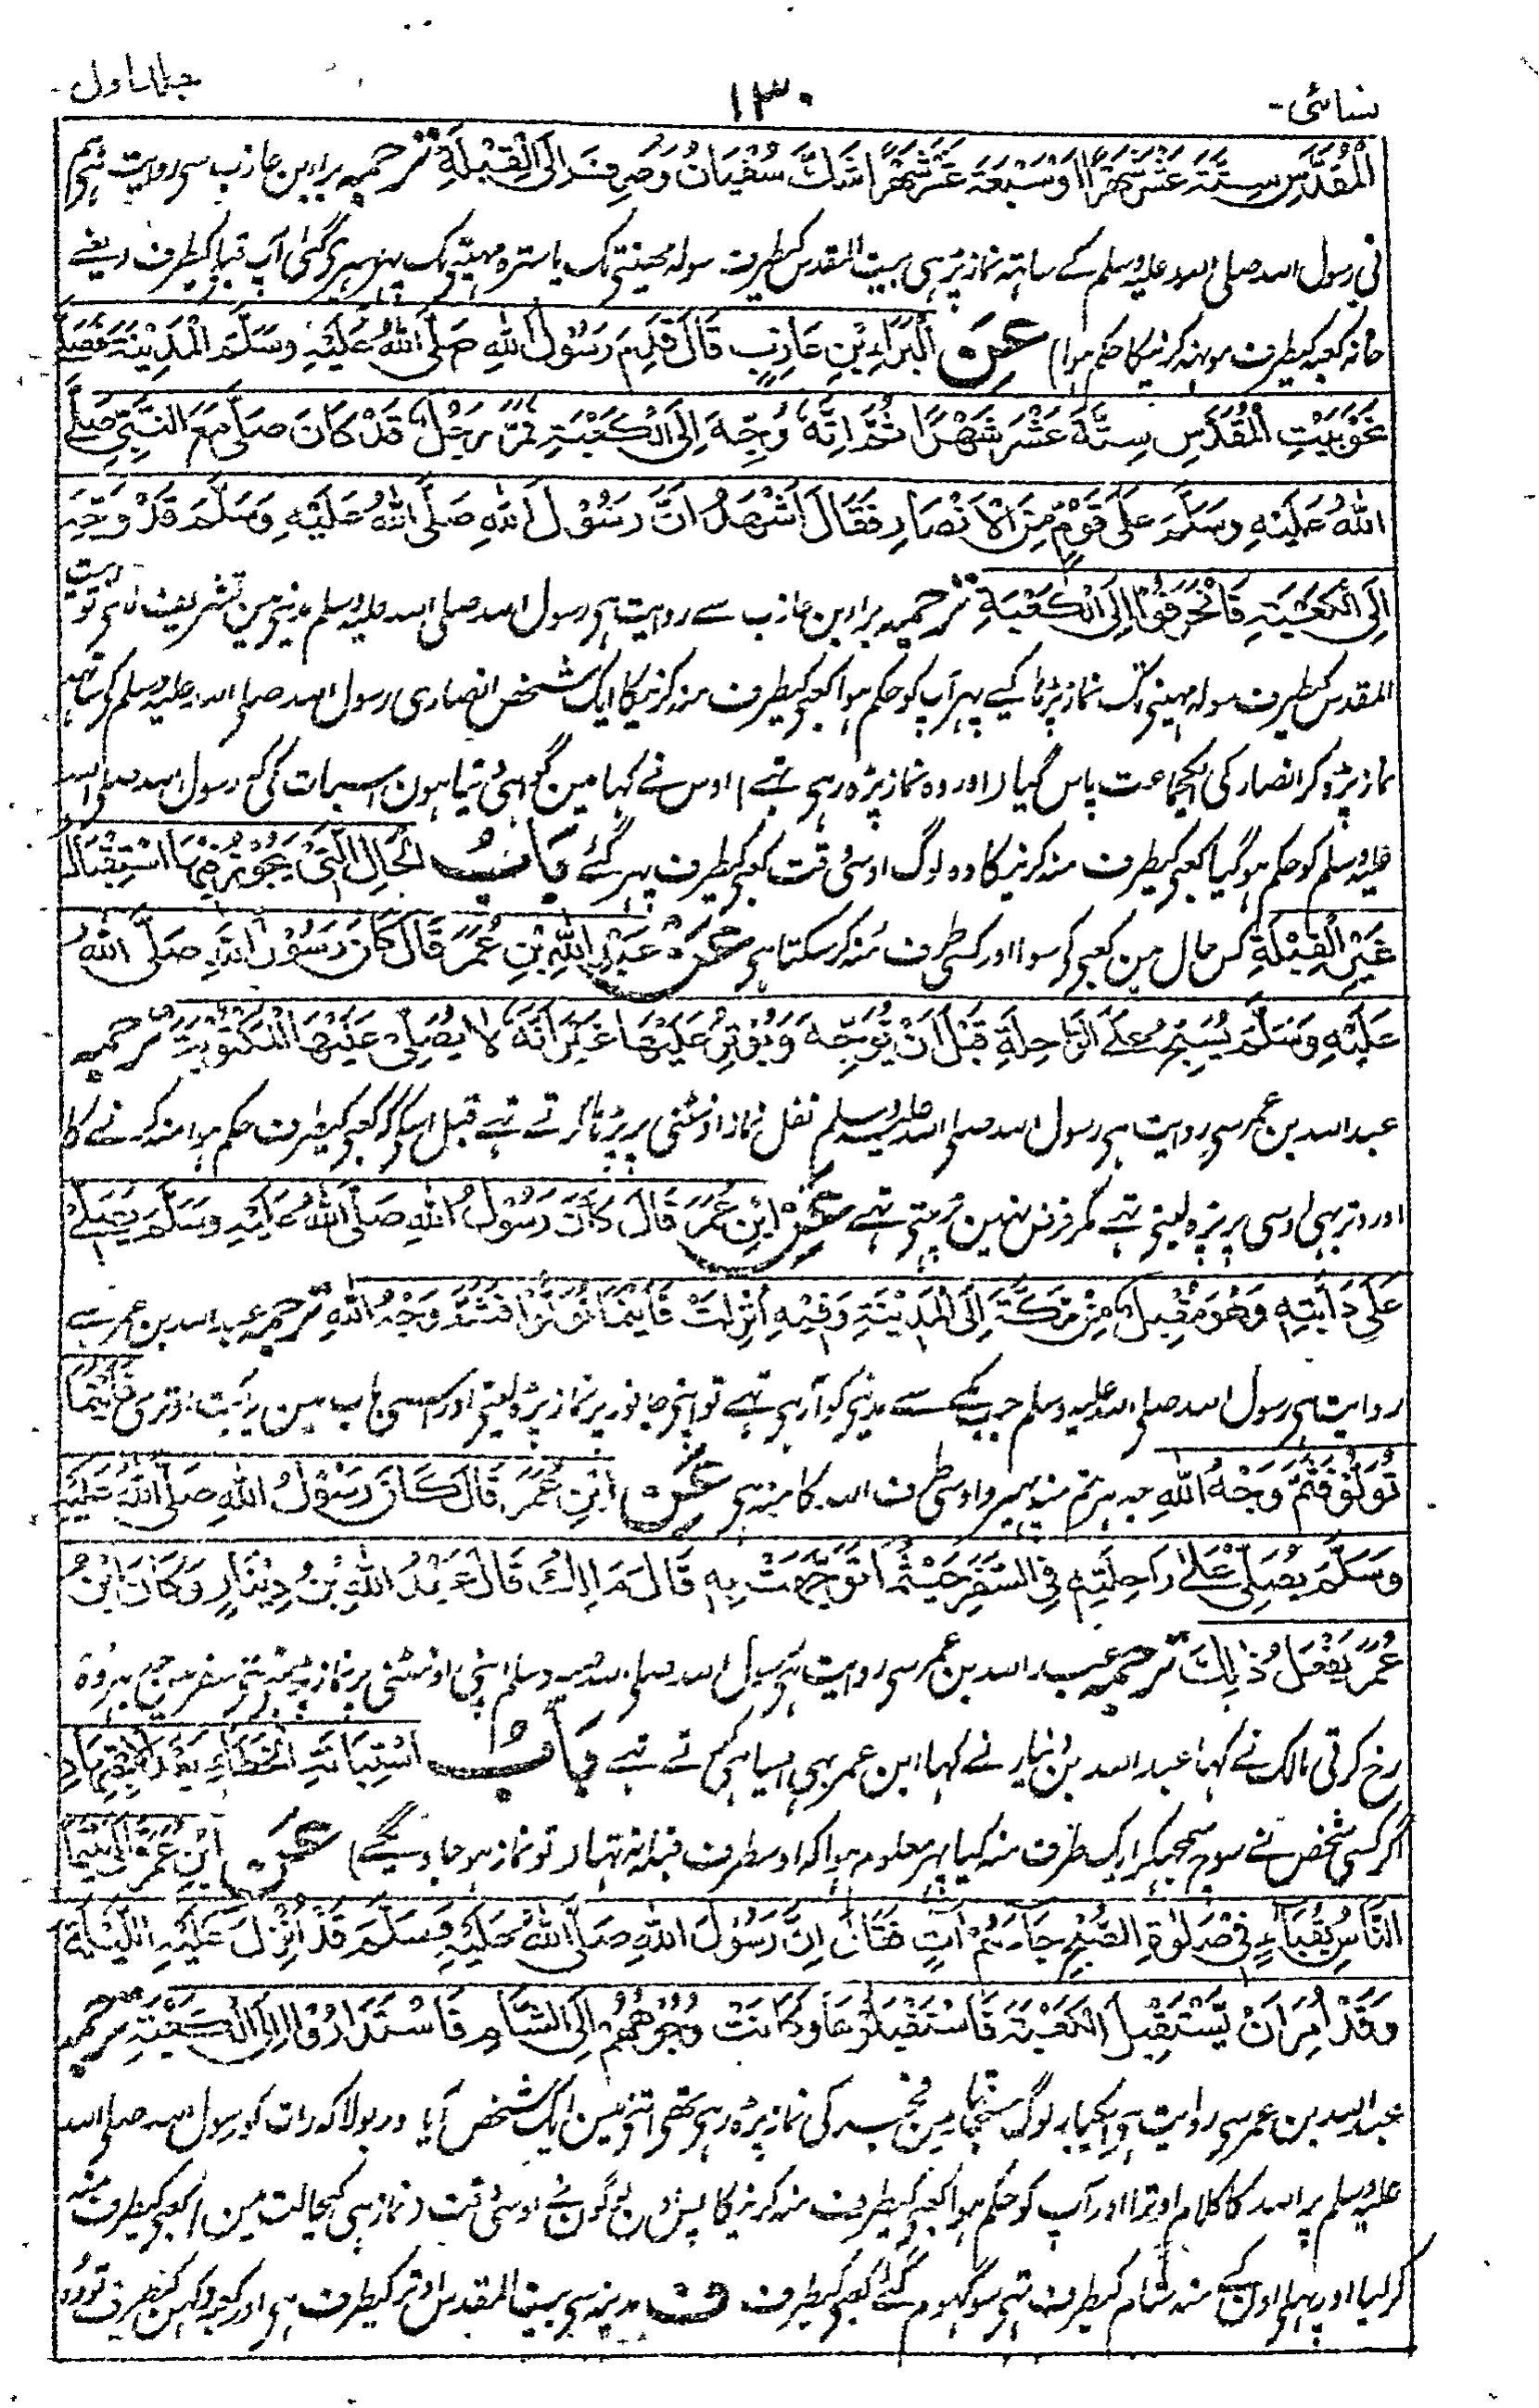 نسائی-
۱۳۰
جلد اول-
الْمُقَدَّسِ سِتَّةَ عَشَرَ شَهْرًا اَوْ سَبْعَةَ عَشَرَ شَهْرًا شَكَّ سُفْيَانُ وَصُرِفَ اِلَى الْقِبْلَةِ ترجمہ براء بن عازب سی روایت ہی ہم
نی رسول اسد صلی اسد علیہ وسلم کے ساتہہ نماز پڑہی بیت المقدس کیطرف سولہ مہینی تک یا سترہ مہینی تک پہر پہیری گئی آپ قبلہ کیطرف (یعنے
خانہ کعبہ کیطرف مونہہ کرنیکا حکم ہوا) عَنِ الْبَرَاءِ بْنِ عَازِبٍ قَالَ قَدِمَ رَسُوْلُ اللهِ صَلَّى اللهُ عَلَيْهِ وَسَلَّمَ الْمَدِيْنَةَ فَصَلّٰى
نَحْوَ بَيْتِ الْمُقَدَّسِ سِتَّةَ عَشَرَ شَهْرًا ثُمَّ اِنَّهٗ وُجِّهَ اِلَى الْكَعْبَةِ فَمَرَّ رَجُلٌ قَدْ كَانَ صَلّٰى مَعَ النَّبِيِّ صَلَّى
اللهُ عَلَيْهِ وَسَلَّمَ عَلٰى قَوْمٍ مِنَ الْاَنْصَارِ فَقَالَ اَشْهَدُ اَنَّ رَسُوْلَ اللهِ صَلَّى اللهُ عَلَيْهِ وَسَلَّمَ قَدْ وُجِّهَ
اِلَى الْكَعْبَةِ فَانْحَرَفُوْا اِلَى الْكَعْبَةِ ترجمہ براء بن عازب سے روایت ہی رسول اسد صلی اسد علیہ وسلم مدینی مین تشریف لائی تو بیت
المقدس کیطرف سولہ مہینی تک نماز پڑہا کیے پہر آپ کو حکم ہوا کعبی کیطرف منہ کرنیکا ایک شخص انصاری رسول اسد صلی اسد علیہ وسلم کی ساتہہ
نماز پڑہ کر انصار کی ایکجماعت پاس گیا (اور وہ نماز پڑہ رہی تہے) اوس نے کہا مین گواہی دیتا ہون اسبات کی کہ رسول اسد صلی اسد
علیہ وسلم کو حکم ہوگیا کعبی کیطرف منہ کرنیکا وہ لوگ اوسی وقت کعبی کیطرف پہر گئے بَابُ الْحَالِ الَّتِيْ يَجُوْزُ فِيْهَا اسْتِقْبَالُ
غَيْرِ الْقِبْلَةِ کس حال مین کعبی کی سوا اور کسی طرف منہ کرسکتا ہی عَنْ عَبْدِ اللهِ بْنِ عُمَرَ قَالَ كَانَ رَسُوْلُ اللهِ صَلَّى اللهُ
عَلَيْهِ وَسَلَّمَ يُسَبِّحُ عَلَى الرَّاحِلَةِ قِبَلَ اَنْ تُوَجِّهَ وَيُوْتِرُ عَلَيْهَا غَيْرَ اَنَّهٗ لَا يُصَلِّيْ عَلَيْهَا الْمَكْتُوْبَةَ ترجمہ
عبد اسد بن عمر سی روایت ہی رسول اسد صلی اسد علیہ وسلم نفل نماز اونٹنی پر پڑہا کرتے تہے قبل اسکے کہ کعبی کیطرف حکم ہوا منہ کرنے کا
اور وتر بہی اوسی پر پڑہ لیتی تہے مگر فرض نہین پڑہتی تہے عَنِ ابْنِ عُمَرَ قَالَ كَانَ رَسُوْلُ اللهِ صَلَّى اللهُ عَلَيْهِ وَسَلَّمَ يُصَلِّيْ
عَلٰى دَابَّتِهٖ وَهُوَ مُقْبِلٌ مِنْ مَكَّةَ اِلَى الْمَدِيْنَةِ وَفِيْهِ اُنْزِلَتْ فَاَيْنَمَا تُوَلُّوْا فَثَمَّ وَجْهُ اللهِ ترجمہ عبد اسد بن عمر سے
روایت ہی رسول اسد صلی اسد علیہ وسلم جب مکے سے مدینی کو آرہی تہے تو اپنی جانور پر نماز پڑہ لیتی اور اسی باب مین یہ آیت اوتری فَاَيْنَمَا
تُوَلُّوْا فَثَمَّ وَجْهُ اللهِ جدہر تم منہ پہیرو اوسی طرف اسد کا منہ ہی عَنِ ابْنِ عُمَرَ قَالَ كَانَ رَسُوْلُ اللهِ صَلَّى اللهُ عَلَيْهِ
وَسَلَّمَ يُصَلِّيْ عَلٰى رَاحِلَتِهٖ فِي السَّفَرِ حَيْثُمَا تَوَجَّهَتْ بِهٖ قَالَ مَالِكٌ قَالَ عَبْدُ اللهِ بْنُ دِيْنَارٍ وَكَانَ ابْنُ
عُمَرَ يَفْعَلُ ذٰلِكَ ترجمہ عبد اسد بن عمر سی روایت ہی رسول اسد صلی اسد علیہ وسلم اپنی اونٹنی پر نماز پڑہتی تہی سفر مین جدہر وہ
رخ کرتی مالک نے کہا عبد اسد بن دینار نے کہا ابن عمر بہی ایسا ہی کرتے تہے بَابُ اسْتِبَانَةِ الْخَطَاءِ بَعْدَ الْاِجْتِهَادِ
اگر کسی شخص نے سوچ سمجہکر ایک طرف منہ کیا پہر معلوم ہوا کہ اوسطرف قبلہ نہ تہا (تو نماز ہو جاویگے) عَنِ ابْنِ عُمَرَ قَالَ بَيْنَمَا
النَّاسُ بِقُبَاءٍ فِيْ صَلٰوةِ الصُّبْحِ جَاءَهُمْ اٰتٍ فَقَالَ اِنَّ رَسُوْلَ اللهِ صَلَّى اللهُ عَلَيْهِ وَسَلَّمَ قَدْ اُنْزِلَ عَلَيْهِ اللَّيْلَةَ
وَقَدْ اُمِرَ اَنْ يَّسْتَقْبِلَ الْكَعْبَةَ فَاسْتَقْبَلُوْهَا وَكَانَتْ وُجُوْهُهُمْ اِلَى الشَّامِ فَاسْتَدَارُوْا اِلَى الْكَعْبَةِ ترجمہ
عبد اسد بن عمر سی روایت ہی ایکبار لوگ مسجد قبا مین فجر کی نماز پڑہ رہی تہی اتنی مین ایک شخص آیا اور بولا کہ رات کو رسول اسد صلی اسد
علیہ وسلم پر اسد کا کلام اوترا اور آپ کو حکم ہوا کعبی کیطرف منہ کرنیکا پس اون لوگون نے اوسی وقت (نماز ہی کیحالت مین) کعبی کیطرف منہ
کرلیا اور پہلی اونکے منہ شام کیطرف تہی سو گہوم گئے کعبی کیطرف ف مدینہ سی بیت المقدس اوتر کیطرف ہی اور کعبہ دکہن کیطرف تو وہ